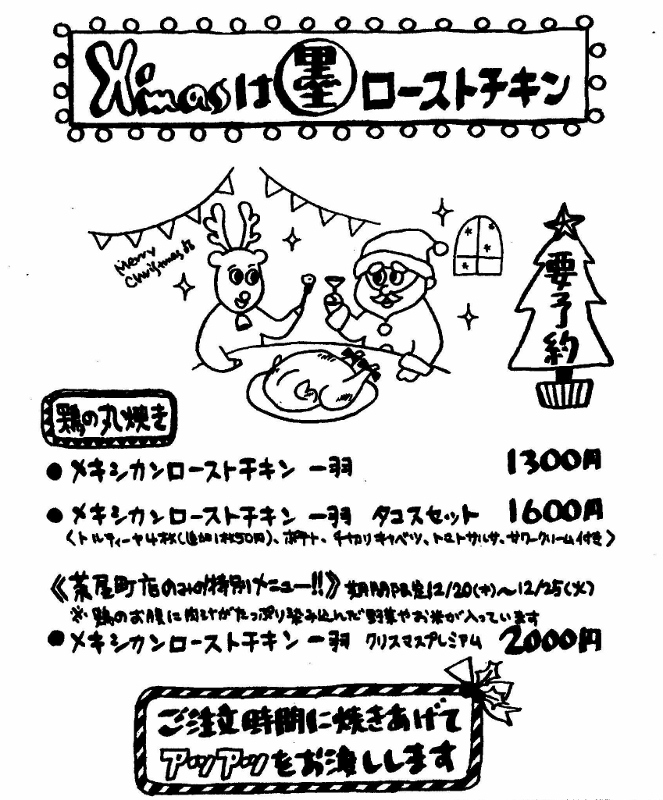 Xmasは墨ローストチキン
Merry
Christmas!!
要予約
鶏の丸焼き
● メキシカンローストチキン 一羽 1300円
● メキシカンローストチキン 一羽 タコスセット 1600円
〈トルティーヤ4枚(追加1枚50円)、ポテト、チャカリキャベツ、トマトサルサ、サワークリーム付き〉
《茶屋町店のみの特別メニュー!!》 期間限定12/20(木)〜12/25(火)
※鶏のお腹に肉汁がたっぷり染み込んだ野菜やお米が入っています
● メキシカンローストチキン 一羽 クリスマスプレミアム 2000円
ご注文時間に焼きあげて
アツアツをお渡しします